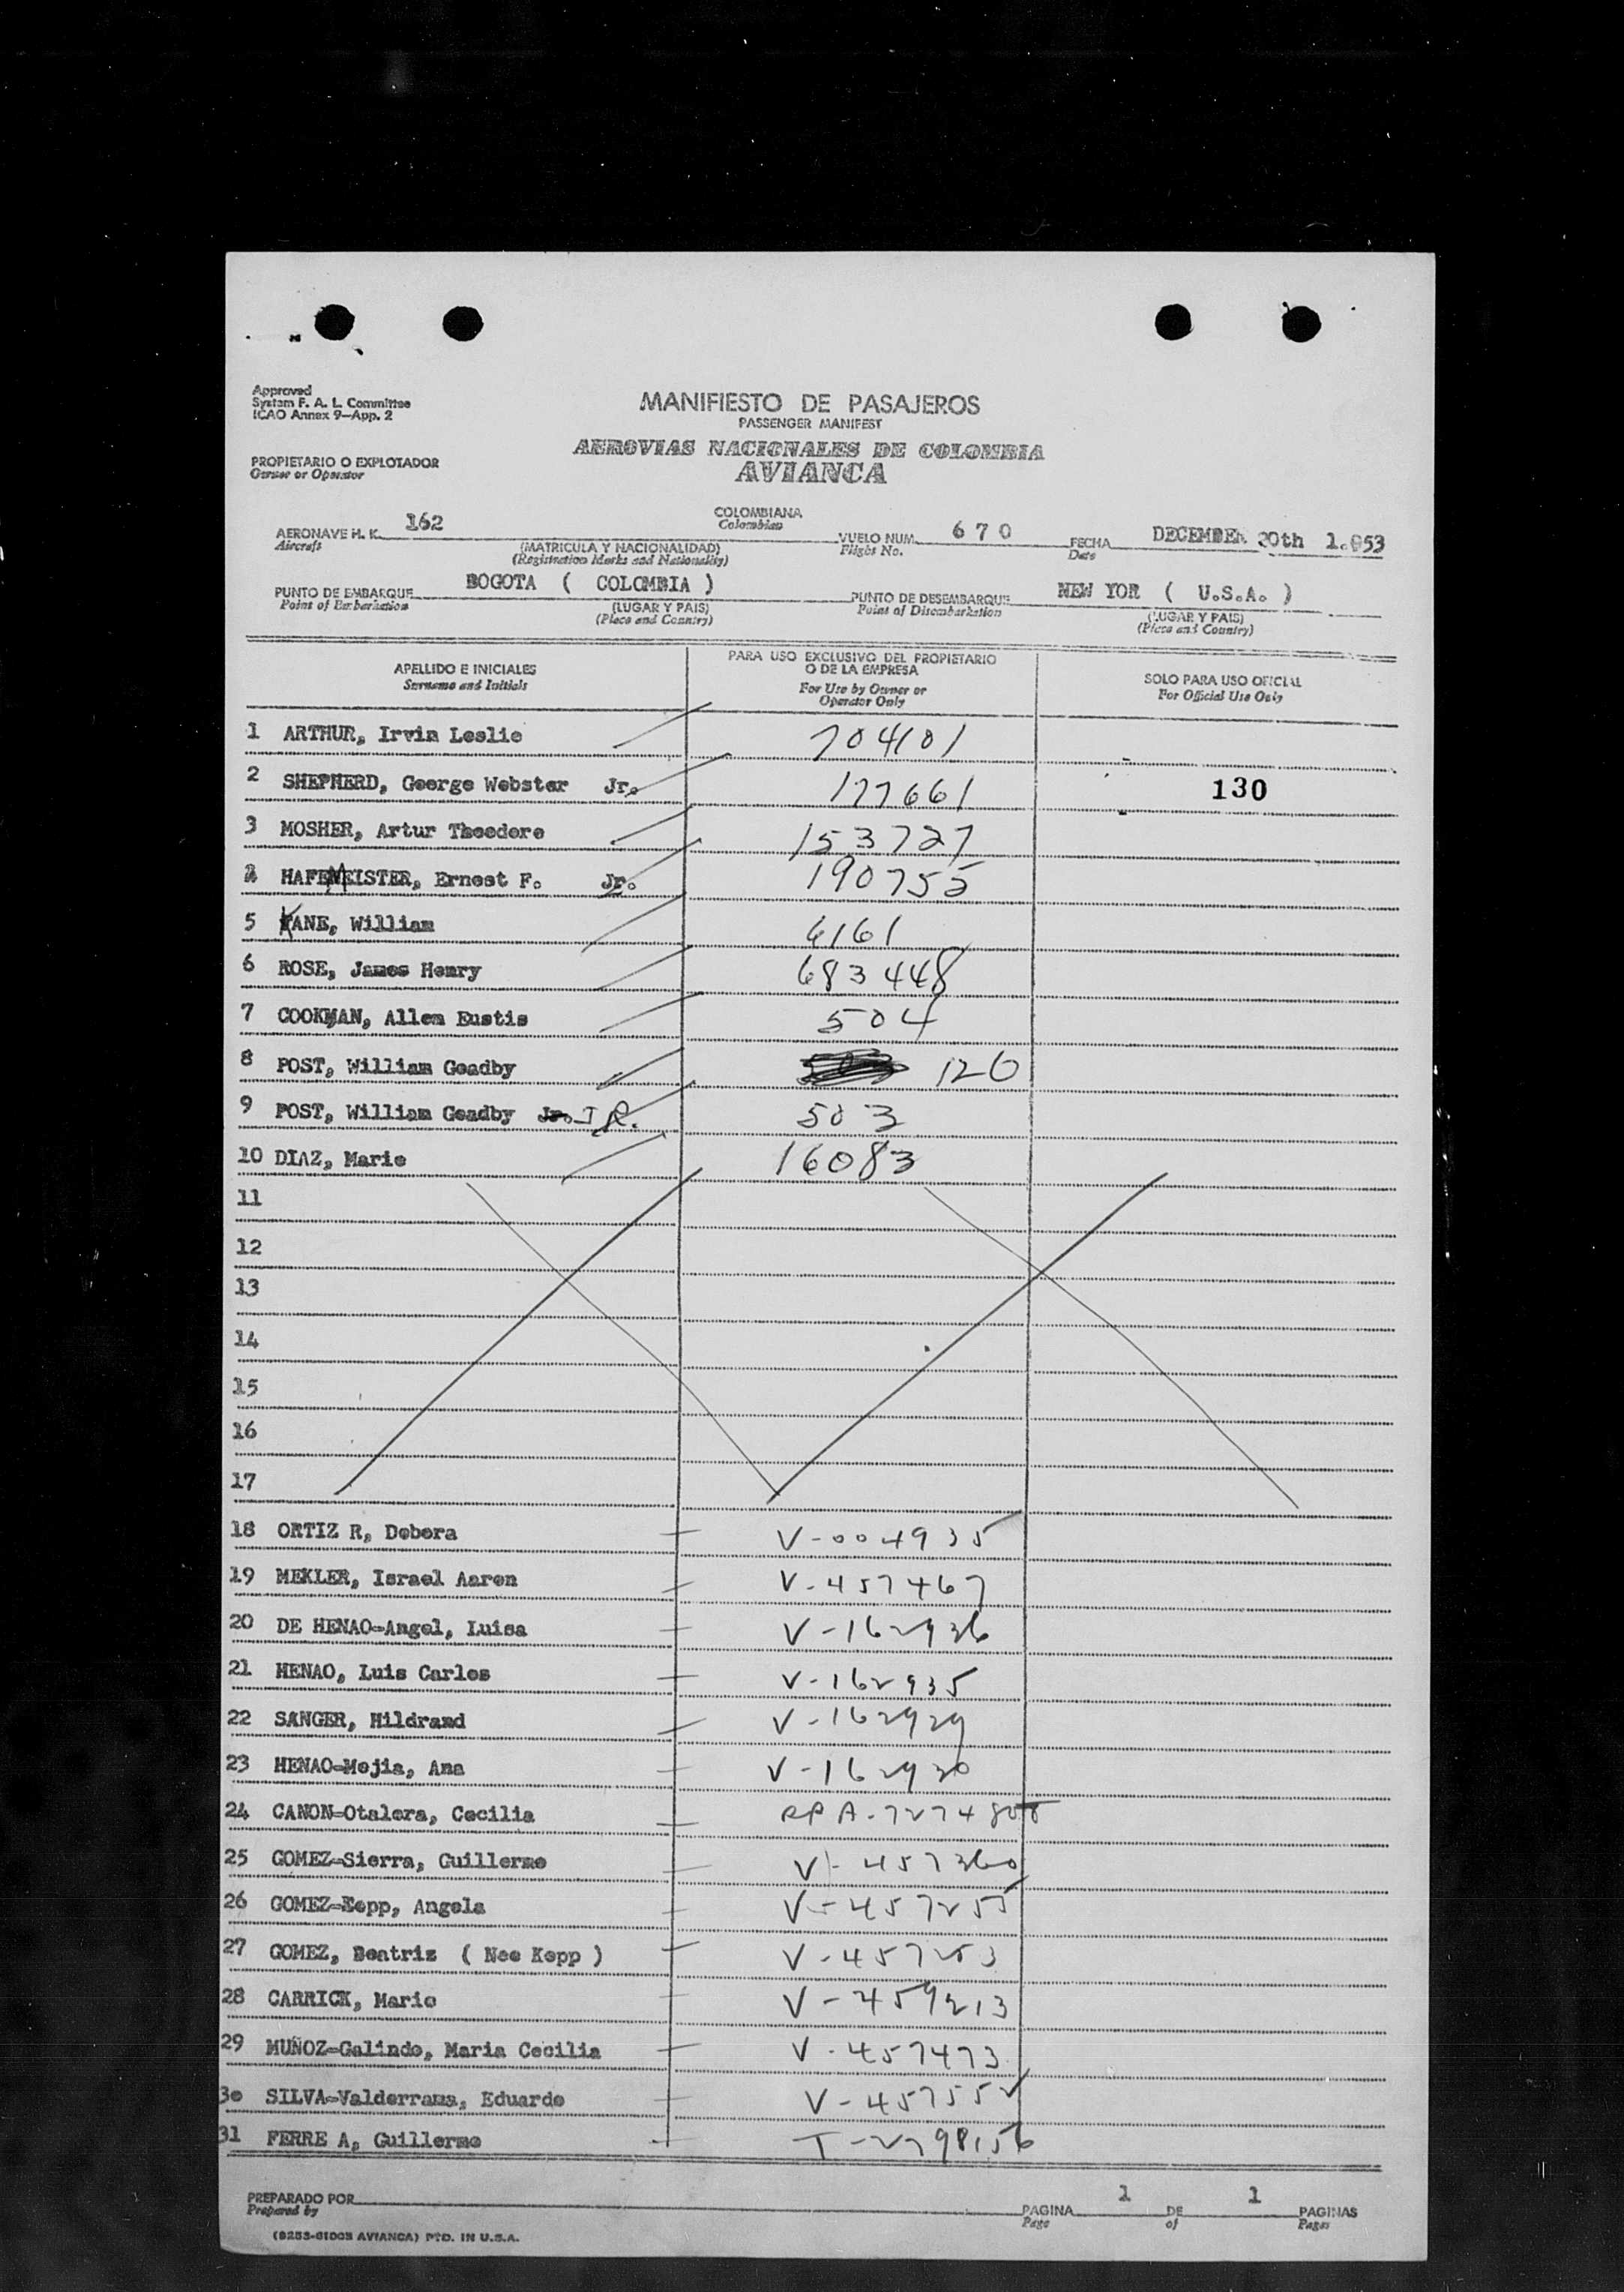 Approved
System F. A. L. Committee
ICAO Annex 9—App. 2
MANIFIESTO DE PASAJEROS
PASSENGER MANIFEST
AEROVIAS NACIONALES DE COLOMBIA
AVIANCA
PROPIETARIO O EXPLOTADOR
Owner or Operator
AERONAVE H. K. 162 COLOMBIANA VUELO NUM. 670 FECHA DECEMBER 20th 1.953
Aircraft Colombian Flight No. Date
(MATRICULA Y NACIONALIDAD)
(Registration Marks and Nationality)
PUNTO DE EMBARQUE BOGOTA ( COLOMBIA ) PUNTO DE DESEMBARQUE NEW YOR ( U.S.A. )
Point of Embarkation (LUGAR Y PAIS) Point of Disembarkation (LUGAR Y PAIS)
(Place and Country) (Place and Country)
APELLIDO E INICIALES
Surname and Initials
PARA USO EXCLUSIVO DEL PROPIETARIO
O DE LA EMPRESA
For Use by Owner or
Operator Only
SOLO PARA USO OFICIAL
For Official Use Only
1 ARTHUR, Irvin Leslie 704101
2 SHEPHERD, George Webster Jr. 177661 130
3 MOSHER, Artur Theodore 153727
4 HAFEMEISTER, Ernest F. Jr. 190755
5 KANE, William 6161
6 ROSE, James Henry 683448
7 COOKMAN, Allen Eustis 504
8 POST, William Goadby 126
9 POST, William Goadby Jr. JR. 503
10 DIAZ, Marie 16083
11
12
13
14
15
16
17
18 ORTIZ R, Debora V-004935
19 MEKLER, Israel Aaron V-457467
20 DE HENAO-Angel, Luisa V-162936
21 HENAO, Luis Carlos V-162935
22 SANGER, Hildrand V-162929
23 HENAO-Mejia, Ana V-162930
24 CANON-Otalora, Cecilia
25 GOMEZ-Sierra, Guillermo V-457360
26 GOMEZ-Kopp, Angela V-457255
27 GOMEZ, Beatriz ( Nee Kopp ) V-457253
28 CARRICK, Mario V-459213
29 MUÑOZ-Galindo, Maria Cecilia V-457473
30 SILVA-Valderrama, Eduardo V-457552
31 FERRE A, Guillermo T-2798156
PREPARADO POR PAGINA 1 DE 1 PAGINAS
Prepared by Page of Pages
(8253-61003 AVIANCA) PTD. IN U.S.A.